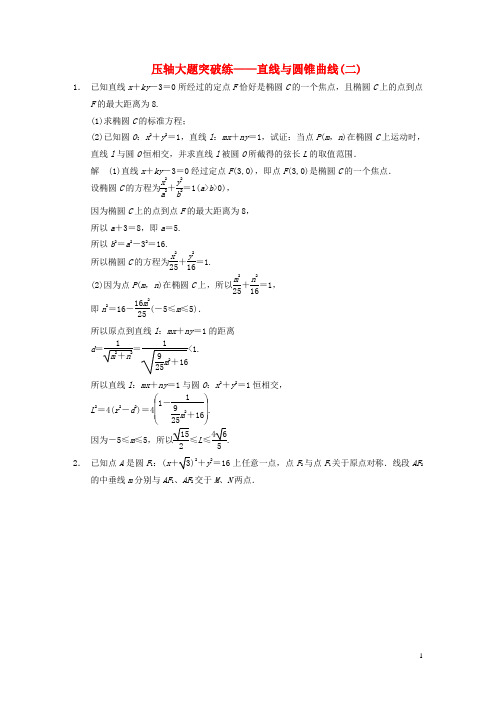 压轴大题突破练——直线与圆锥曲线(二)
1. 已知直线x+ky-3=0所经过的定点F恰好是椭圆C的一个焦点，且椭圆C上的点到点
F的最大距离为8.
(1)求椭圆C的标准方程；
(2)已知圆O：x²+y²=1，直线l：mx+ny=1，试证：当点P(m，n)在椭圆C上运动时，
直线l与圆O恒相交，并求直线l被圆O所截得的弦长L的取值范围.
解 (1)直线x+ky-3=0经过定点F(3,0)，即点F(3,0)是椭圆C的一个焦点.
设椭圆C的方程为x²/a²+y²/b²=1(a>b>0)，
因为椭圆C上的点到点F的最大距离为8，
所以a+3=8，即a=5.
所以b²=a²-3²=16.
所以椭圆C的方程为x²/25+y²/16=1.
(2)因为点P(m，n)在椭圆C上，所以m²/25+n²/16=1，
即n²=16-16m²/25(-5≤m≤5).
所以原点到直线l：mx+ny=1的距离
d=1/√(m²+n²)=1/√(9/25m²+16)<1.
所以直线l：mx+ny=1与圆O：x²+y²=1恒相交，
L²=4(r²-d²)=4(1-1/(9/25m²+16)).
因为-5≤m≤5，所以√15/2≤L≤4√6/5.
2. 已知点A是圆F₁：(x+√3)²+y²=16上任意一点，点F₂与点F₁关于原点对称.线段AF₂
的中垂线m分别与AF₁、AF₂交于M、N两点.
1